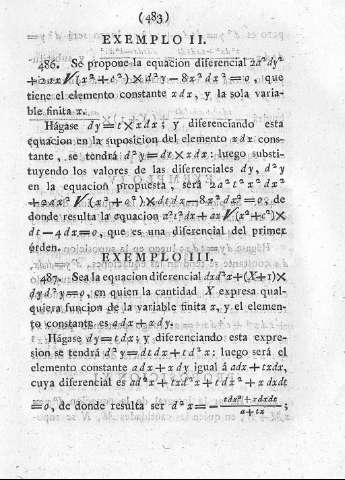 (483)
EXEMPLO II.
486. Se propone la equacion diferencial 2a²dy²
+2ax√(x²+c²)×d²y−8x²dx²=0, que
tiene el elemento constante xdx, y la sola varia-
ble finita x.
Hágase dy=t×xdx; y diferenciando esta
equacion en la suposicion del elemento xdx cons-
tante, se tendrá d²y=dt×xdx: luego substi-
tuyendo los valores de las diferenciales dy, d²y
en la equacion propuesta, será 2a²t²x²dx²
+2ax²√(x²+c²)×dtdx−8x²dx²=0, de
donde resulta la equacion a²t²dx+ax√(x²+c²)×
dt−4dx=0, que es una diferencial del primer
órden.
EXEMPLO III.
487. Sea la equacion diferencial dxd²x+(X+1)×
dyd²y=0, en quien la cantidad X expresa qual-
quiera funcion de la variable finita x, y el elemen-
to constante es adx+xdy.
Hágase dy=tdx; y diferenciando esta expre-
sion se tendrá d²y=dtdx+td²x: luego será el
elemento constante adx+xdy igual á adx+txdx,
cuya diferencial es ad²x+txd²x+tdx²+xdxdt
=0, de donde resulta ser d²x=−(tdx²+xdxdt)/(a+tx);